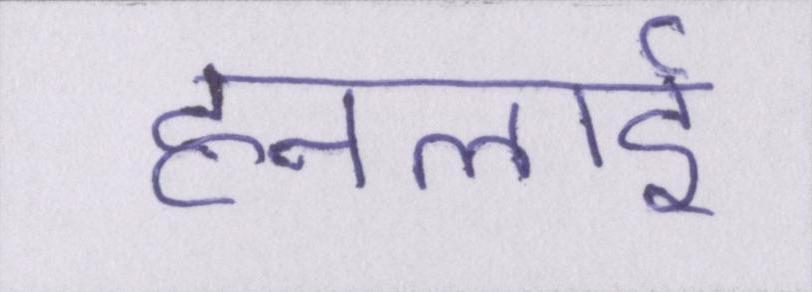 हनलाई